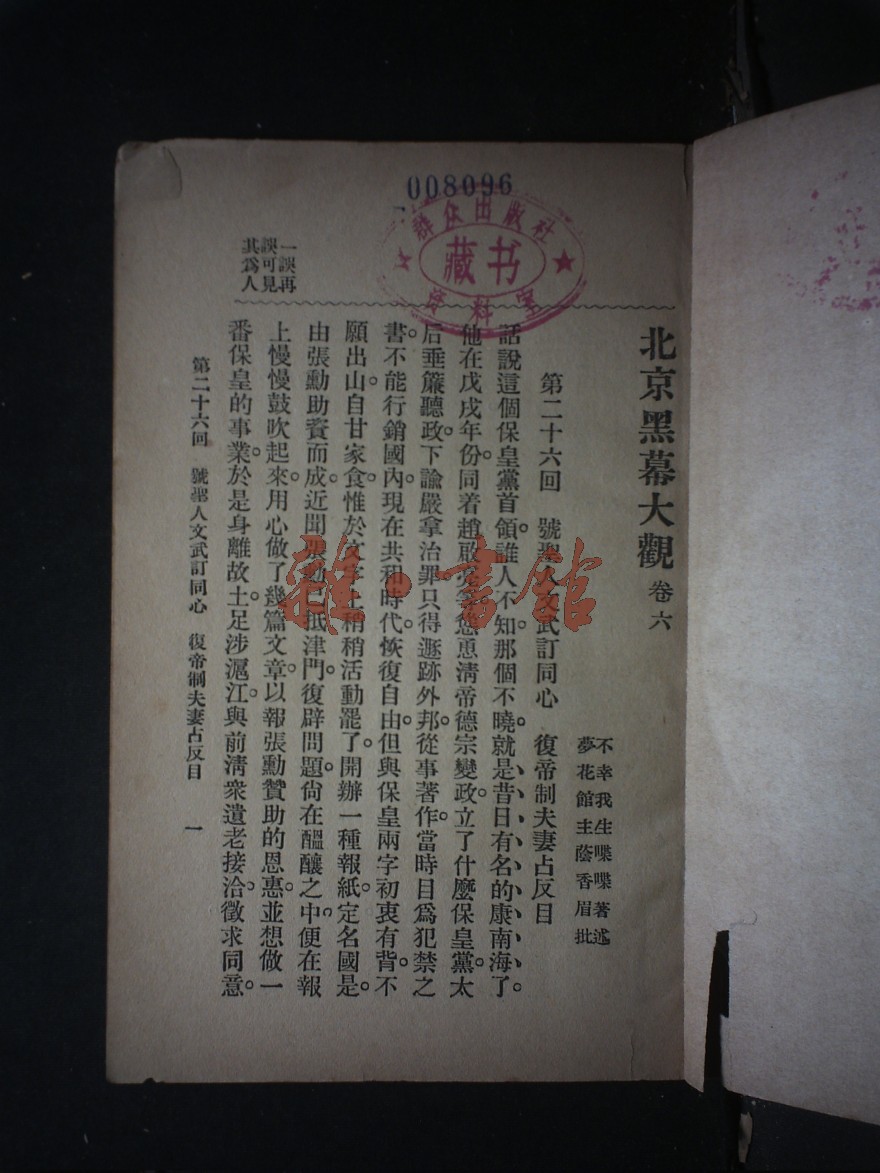 008096
群众出版社
藏书
资料室
北京黑幕大觀 卷六
不幸我生喋喋著述
夢花館主蔭香眉批
第二十六回 號聖人文武訂同心 復帝制夫妻占反目
話說這個保皇黨首領。誰人不知那個不曉。就是昔日有名的康南海了。
他在戊戌年份。同着趙啟 等慫恿清帝德宗變政。立了什麼保皇黨太
后垂簾聽政。下諭嚴拿治罪只得遯跡外邦。從事著作。當時目爲犯禁之
書。不能行銷國內。現在共和時代。恢復自由。但與保皇兩字初衷有背。不
願出山。自甘家食。惟於文字上稍稍活動罷了。開辦一種報紙。定名國是。
由張勳助資而成。近聞張勳已抵津門。復辟問題。尙在醞釀之中。便在報
上慢慢鼓吹起來。用心做了幾篇文章。以報張勳贊助的恩惠。並想做一
番保皇的事業。於是身離故土。足涉滬江。與前清衆遺老接洽。徵求同意。
一誤再
誤可見
其爲人
第二十六回 號聖人文武訂同心 復帝制夫妻占反目 一
雜·書館